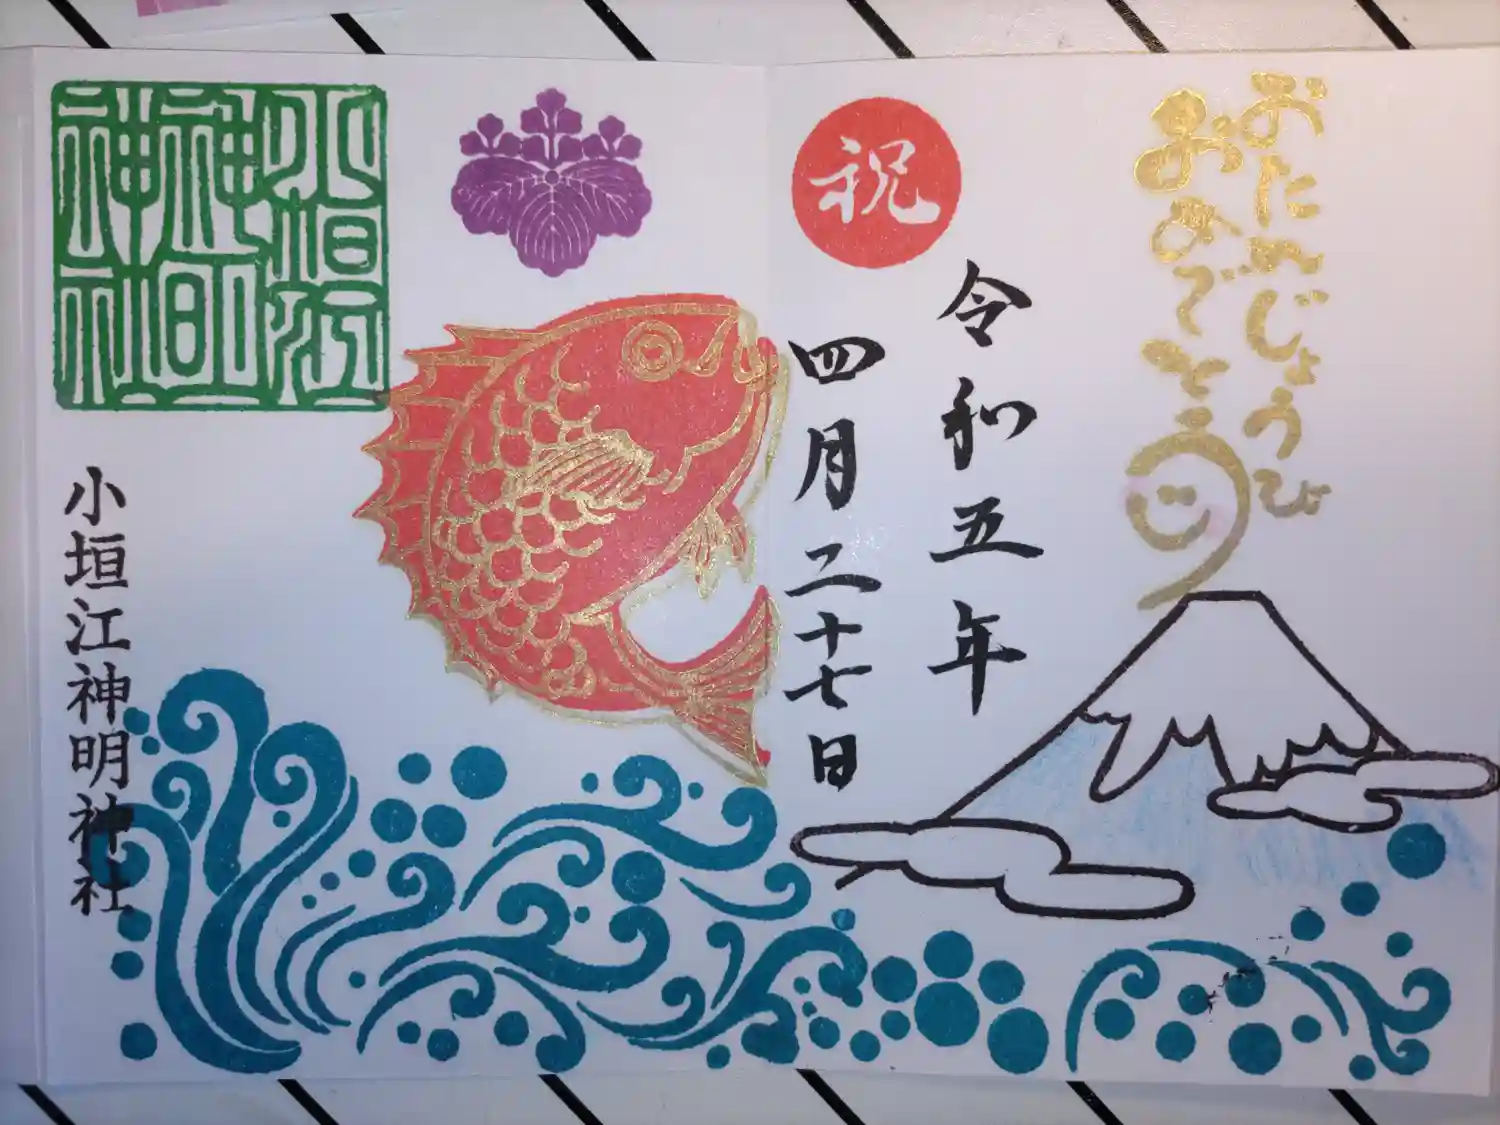 おたんじょうび
おめでとう
祝
令和五年
四月二十七日
小垣江神明神社
小垣江
神明
神社